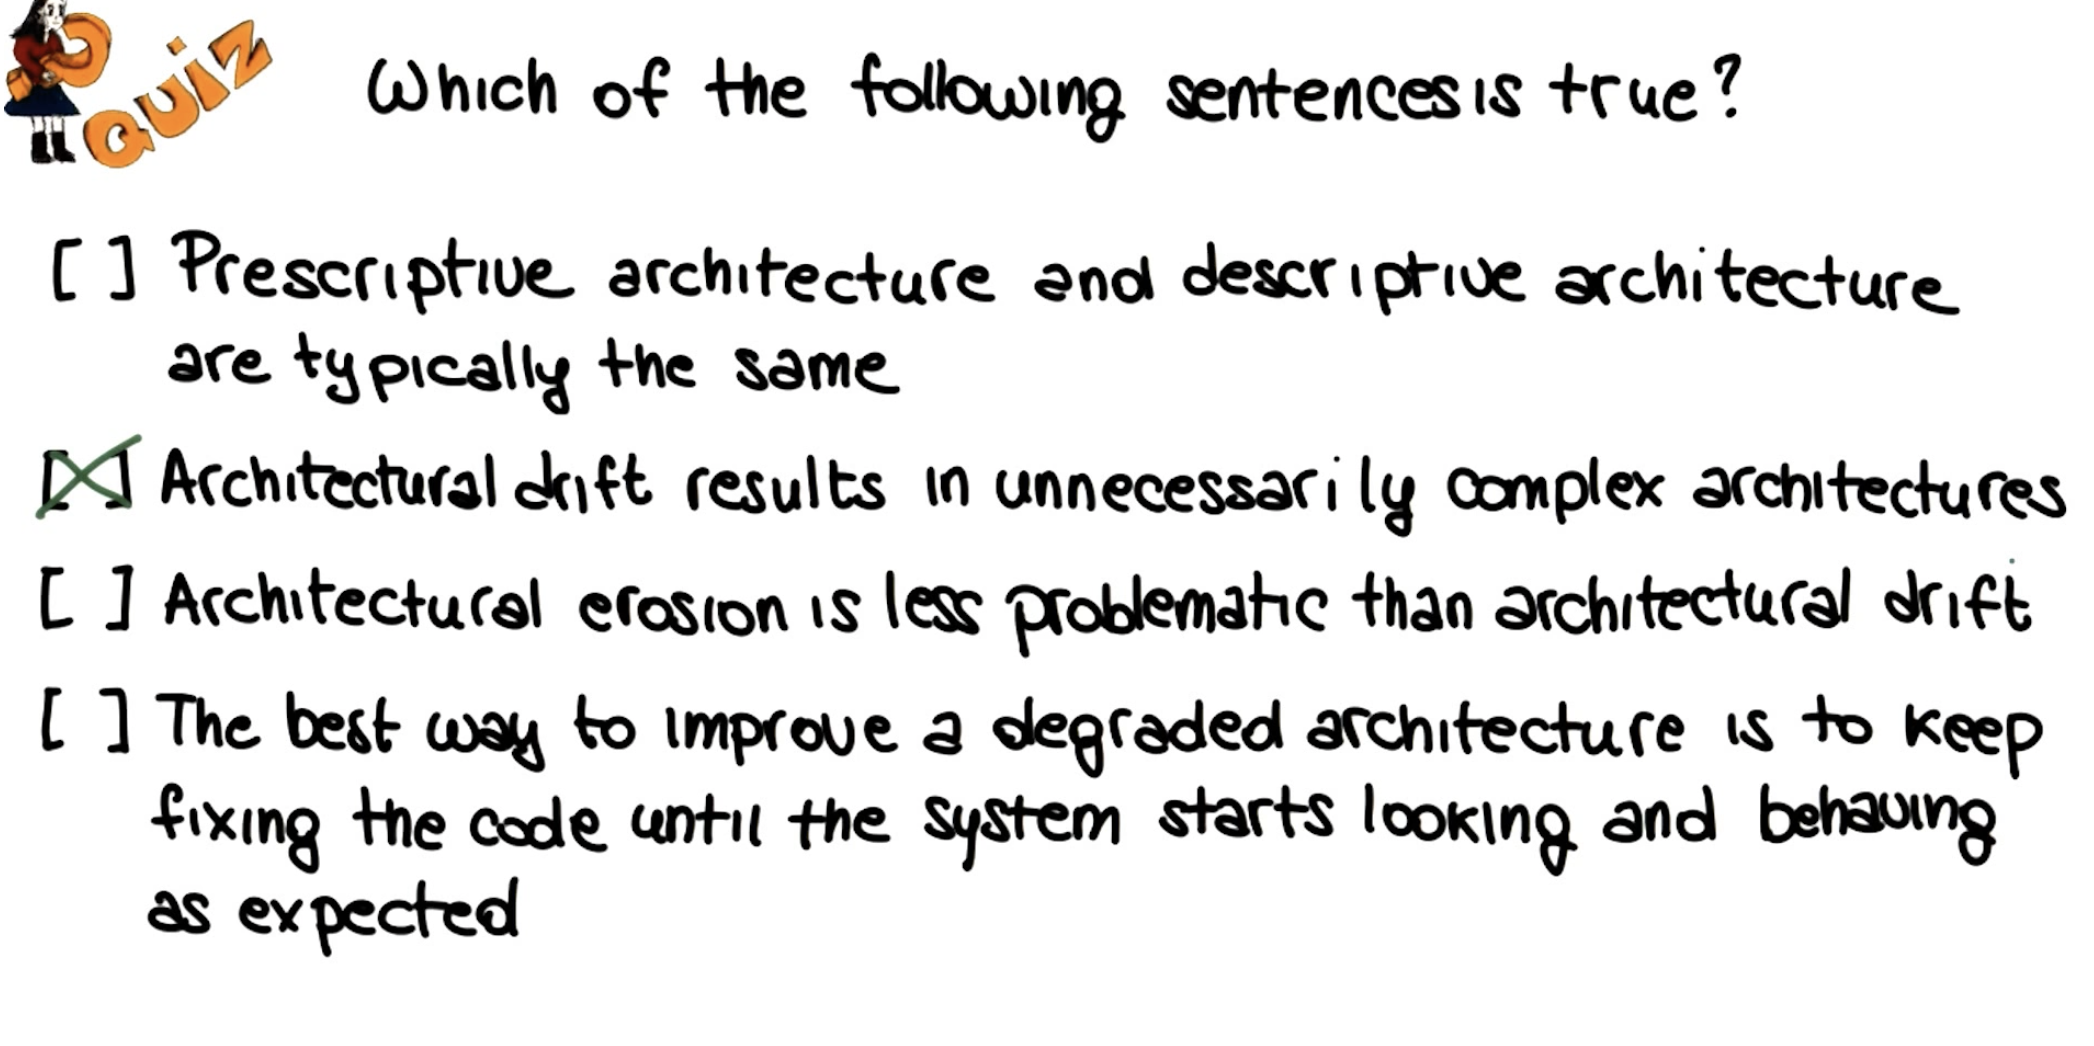 QUIZ Which of the following sentences is true?
[ ] Prescriptive architecture and descriptive architecture
are typically the same
[X] Architectural drift results in unnecessarily complex architectures
[ ] Architectural erosion is less problematic than architectural drift
[ ] The best way to improve a degraded architecture is to keep
fixing the code until the system starts looking and behaving
as expected